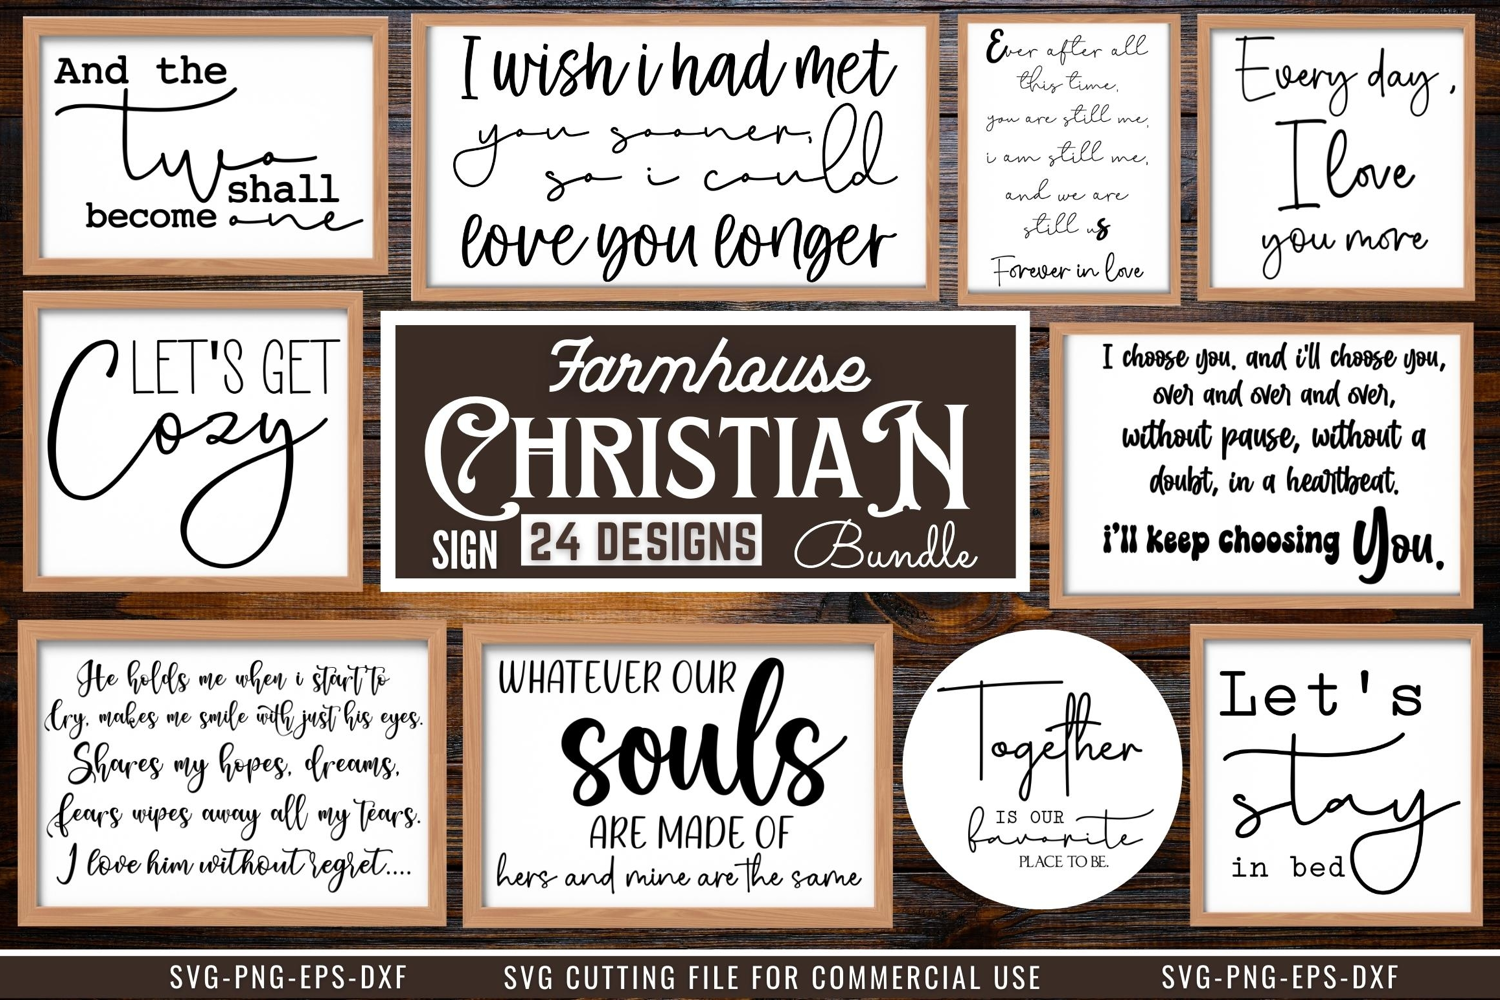 And the
two
shall
become one
I wish i had met
you sooner,
so i could
love you longer
Ever after all
this time,
you are still me,
i am still me,
and we are
still us
Forever in love
Every day,
I love
you more
LET'S GET
Cozy
Farmhouse
CHRISTIAN
SIGN 24 DESIGNS Bundle
I choose you. and i'll choose you,
over and over and over,
without pause, without a
doubt, in a heartbeat.
i'll keep choosing You.
He holds me when i start to
Cry, makes me smile with just his eyes.
Shares my hopes, dreams,
fears wipes away all my tears.
I love him without regret....
WHATEVER OUR
souls
ARE MADE OF
hers and mine are the same
Together
IS OUR
favorite
PLACE TO BE.
Let's
stay
in bed
SVG-PNG-EPS-DXF
SVG CUTTING FILE FOR COMMERCIAL USE
SVG-PNG-EPS-DXF